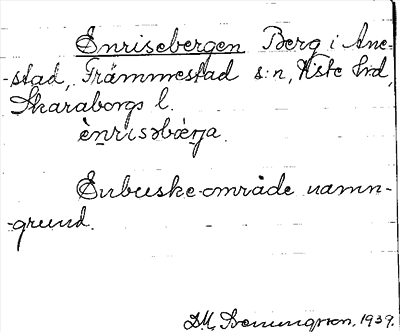 Enrisebergen Berg i Ane-
-stad, Främmestad s:n, Åste hd,
Skaraborgs l.
ènrisəbæ̀rja.
Enbuske-område namn-
-grund.
1939.